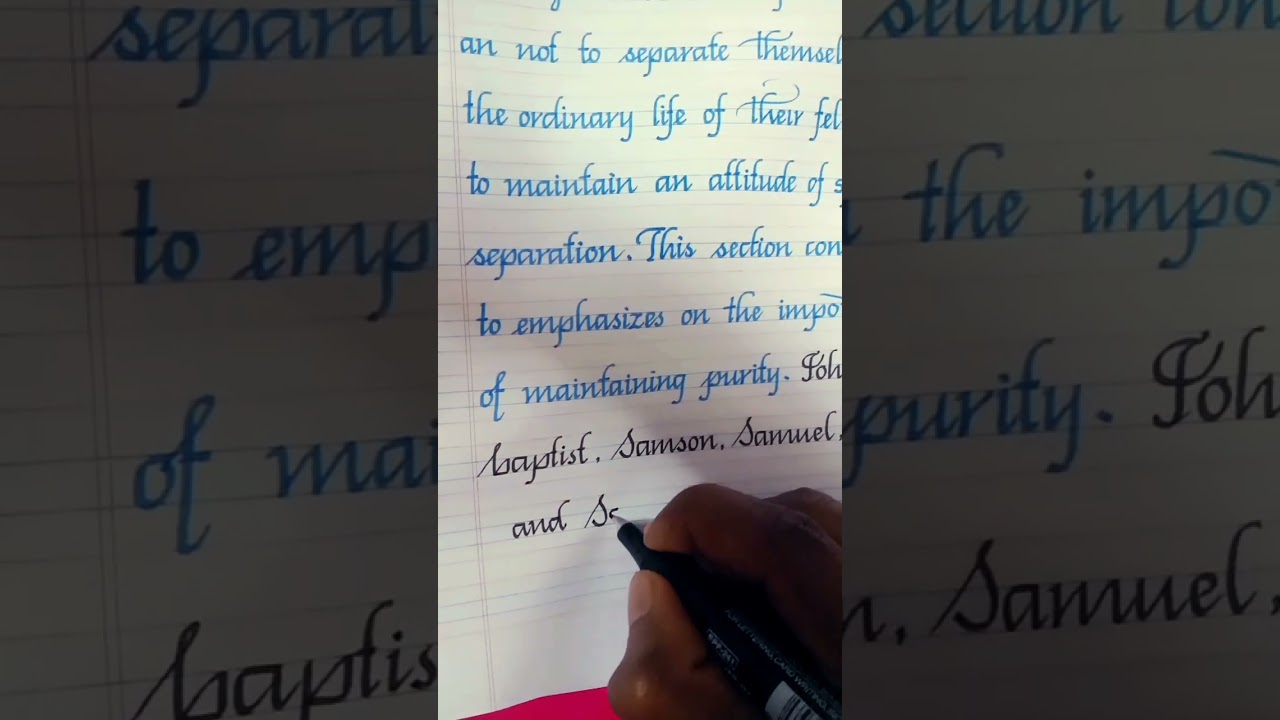 an not to separate themsel
the ordinary life of their fel
to maintain an attitude of s
separation. This section con
to emphasizes on the impo
of maintaining purity. Joh
baptist, Samson, Samuel,
and S